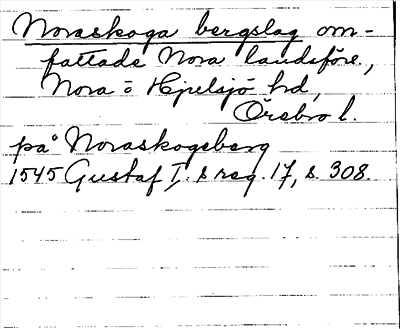 Noraskoga bergslag om-
fattade Nora landsföre.,
Nora o Hjelsjö hd,
Örebro l.
på Noraskogsberg
1545 Gustaf I:s reg. 17, s. 308.